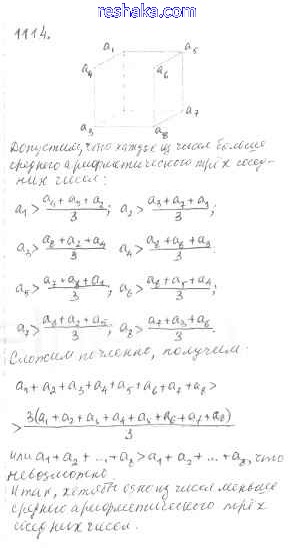 reshaka.com
1114.
a₁ a₅
a₄ a₆
a₇
a₃ a₈
Допустим, что каждое из чисел больше
среднего арифметического трёх сосед-
них чисел:
a₁ > (a₄ + a₅ + a₂)/3; a₂ > (a₃ + a₇ + a₁)/3;
a₃ > (a₈ + a₂ + a₄)/3 a₄ > (a₁ + a₆ + a₃)/3.
a₅ > (a₇ + a₆ + a₁)/3; a₆ > (a₈ + a₅ + a₄)/3;
a₇ > (a₈ + a₂ + a₅)/3; a₈ > (a₇ + a₃ + a₆)/3.
Сложим почленно, получим:
a₁ + a₂ + a₃ + a₄ + a₅ + a₆ + a₇ + a₈ >
> 3(a₁ + a₂ + a₃ + a₄ + a₅ + a₆ + a₇ + a₈)/3
или a₁ + a₂ + ... + a₈ > a₁ + a₂ + ... + a₈, что
невозможно.
Итак, хотя бы одно из чисел меньше
среднего арифметического трёх
соседних чисел.